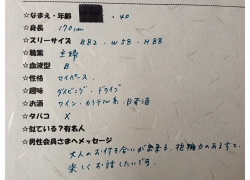 ☆なまえ・年齢 ・40
☆身長 170cm
☆スリーサイズ B82・W58・H88
☆職業 主婦
☆血液型 B
☆性格 マイペース.
☆趣味 ダイビング・ドライブ
☆お酒 ワイン・カクテル系・日本酒
☆タバコ ×
☆似ている?有名人
☆男性会員さまへメッセージ
大人のお付き合いが出来る、包容力のある方と
楽しくお話したいです。